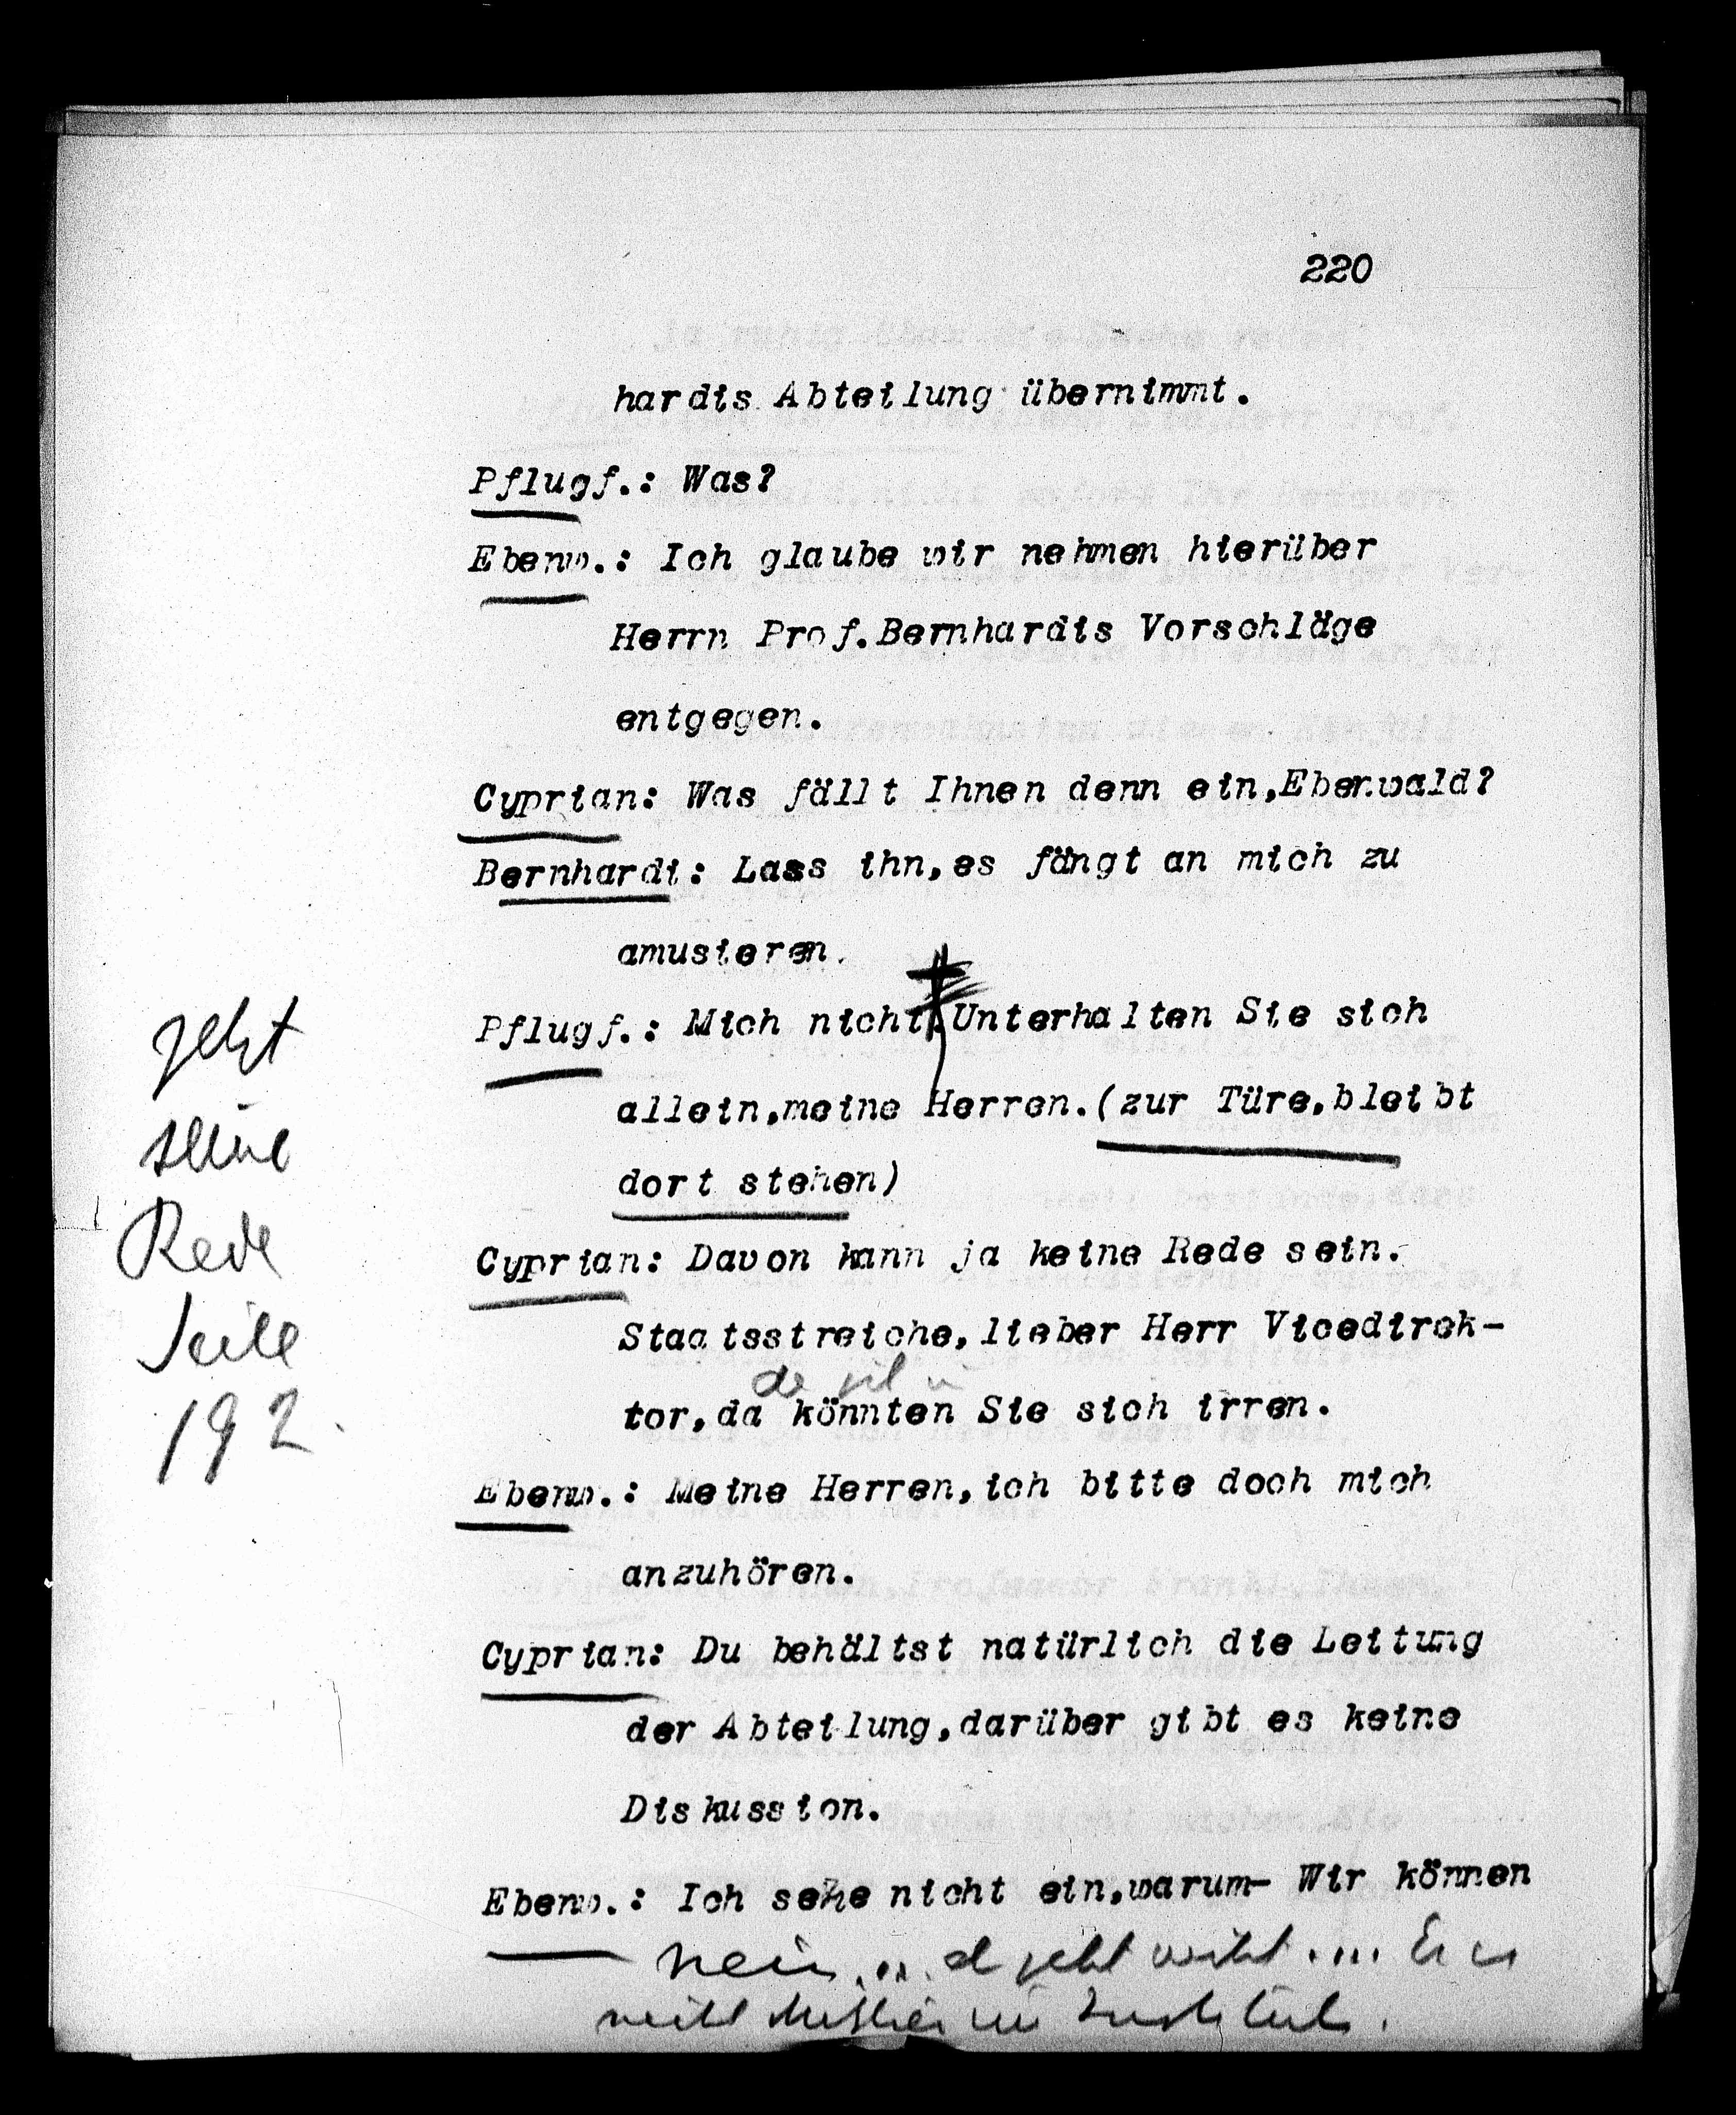 220
hardis Abteilung übernimmt.
Pflugf.: Was?
Ebenw.: Ich glaube wir nehmen hierüber
Herrn Prof.Bernhardis Vorschläge
entgegen.
Cyprian: Was fällt Ihnen denn ein,Ebenwald?
Bernhardi: Lass ihn,es fängt an mich zu
amusieren.
Pflugf.: Mich nicht. Unterhalten Sie sich
allein,meine Herren.(zur Türe,bleibt
dort stehen)
jetzt
seine
Rede
Seite
192.
Cyprian: Davon kann ja keine Rede sein.
Staatsstreiche,lieber Herr Vicedirek-
tor,da könnten Sie sich irren.
Ebenw.: Meine Herren,ich bitte doch mich
anzuhören.
Cyprian: Du behältst natürlich die Leitung
der Abteilung,darüber gibt es keine
Diskussion.
Ebenw.: Ich sehe nicht ein,warum- Wir können
Nein
nicht